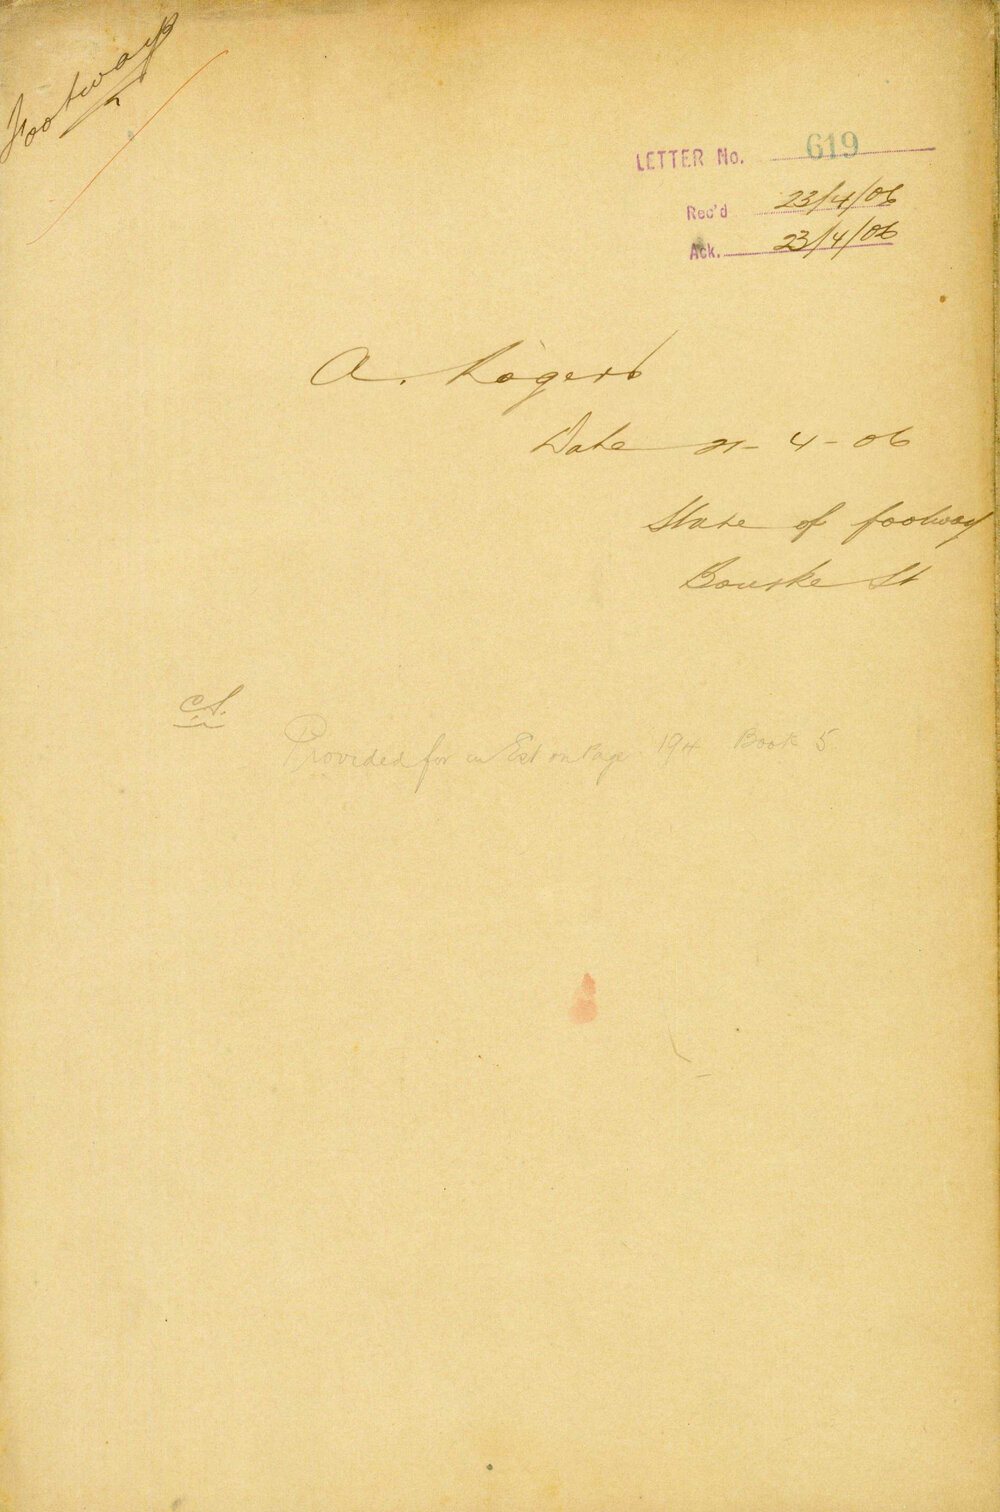 Footways
LETTER No. 619
Rec'd 23/4/06
Ack. 23/4/06
A. Rogers
Date 21-4-06
State of footway
Bourke St
C.S.
Provided for in Est on Page 194 Book 5